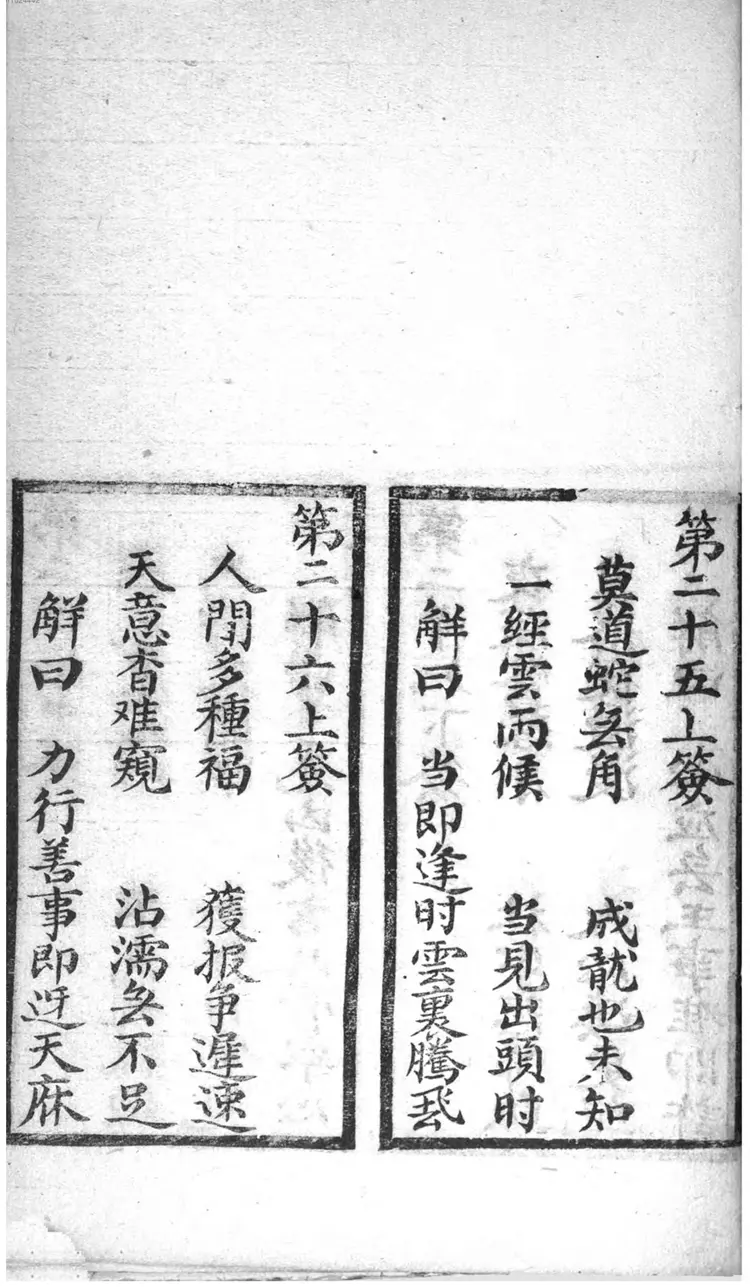 第二十五上簽
莫道蛇无角 成龍也未知
一經雲雨候 当見出頭时
解曰 当即逢时雲裏騰飛
第二十六上簽
人間多種福 獲报争遲速
天意杳难窺 沾濡无不足
解曰 力行善事即迓天庥